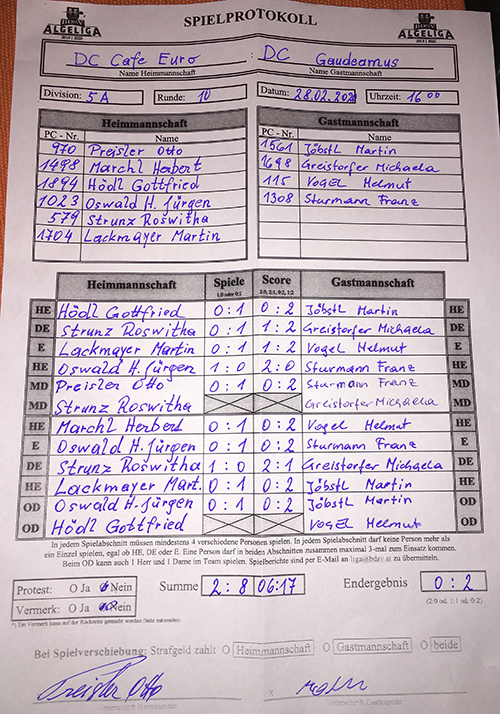 BDSV
ALGELIGA
SPIELPROTOKOLL
BDSV
ALGELIGA
DC Cafe Euro : DC Gaudeamus
Name Heimmannschaft Name Gastmannschaft
Division: 5A Runde: 10 Datum: 28.02.2020 Uhrzeit: 16 00
Heimmannschaft Gastmannschaft
PC - Nr. Name PC - Nr. Name
970 Preisler Otto 1561 Jöbstl Martin
1498 Marchl Herbert 1698 Greistorfer Michaela
1894 Hödl Gottfried 115 Vogel Helmut
1023 Oswald H. Jürgen 1308 Sturmann Franz
579 Strunz Roswitha
1704 Lackmayer Martin
Heimmannschaft Spiele 1:0 oder 0:1 Score 2:0, 2:1, 0:2, 1:2 Gastmannschaft
HE Hödl Gottfried 0:1 0:2 Jöbstl Martin HE
DE Strunz Roswitha 0:1 1:2 Greistorfer Michaela DE
E Lackmayer Martin 0:1 1:2 Vogel Helmut E
HE Oswald H. Jürgen 1:0 2:0 Sturmann Franz HE
MD Preisler Otto 0:1 0:2 Sturmann Franz MD
MD Strunz Roswitha Greistorfer Michaela MD
HE Marchl Herbert 0:1 0:2 Vogel Helmut HE
E Oswald H. Jürgen 0:1 0:2 Sturmann Franz E
DE Strunz Roswitha 1:0 2:1 Greistorfer Michaela DE
HE Lackmayer Mart. 0:1 0:2 Jöbstl Martin HE
OD Oswald H. Jürgen 0:1 0:2 Jöbstl Martin OD
OD Hödl Gottfried Vogel Helmut OD
In jedem Spielabschnitt müssen mindestens 4 verschiedene Personen spielen. In jedem Spielabschnitt darf keine Person mehr als
ein Einzel spielen, egal ob HE, DE oder E. Eine Person darf in beiden Abschnitten zusammen maximal 3-mal zum Einsatz kommen.
Beim OD kann auch 1 Herr und 1 Dame im Team spielen. Spielberichte sind per E-Mail an liga@bdsv.at zu übermitteln.
Protest: O Ja O Nein Summe 2:8 06:17 Endergebnis 0:2
Vermerk: O Ja O Nein (2:0 od. 1:1 od. 0:2)
*) Ein Vermerk kann auf der Rückseite gemacht werden (bitte umwenden)
Bei Spielverschiebung: Strafgeld zahlt O Heimmannschaft O Gastmannschaft O beide
Preisler Otto x
Unterschrift Heimkapitän Unterschrift Gastkapitän